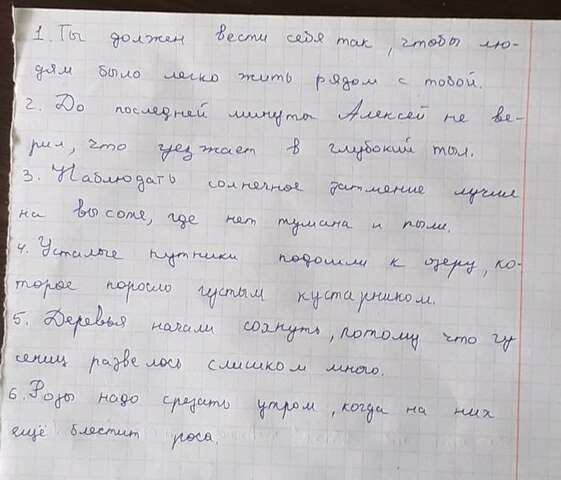 1. Ты должен вести себя так, чтобы лю-
дям было легко жить рядом с тобой.
2. До последней минуты Алексей не ве-
рил, что уезжает в глубокий тыл.
3. Наблюдать солнечное затмение лучше
на высоте, где нет тумана и пыли.
4. Усталые путники подошли к озеру, ко-
торое поросло густым кустарником.
5. Деревья начали сохнуть, потому что гу
сениц развелось слишком много.
6. Розы надо срезать утром, когда на них
ещё блестит роса.